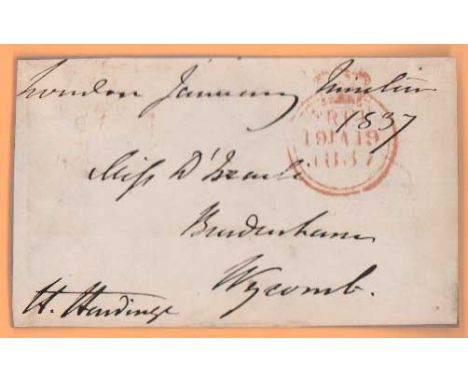 London January Nineteen
1837
FREE
19JA19
1837
Miss D'Israeli
Bradenham
Wycomb.
H. Hardinge